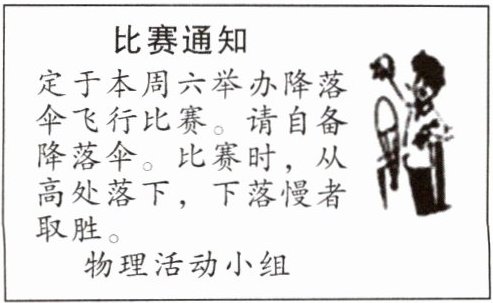 比赛通知
定于本周六举办降落
伞飞行比赛。请自备
降落伞。比赛时，从
高处落下，下落慢者
取胜。
物理活动小组